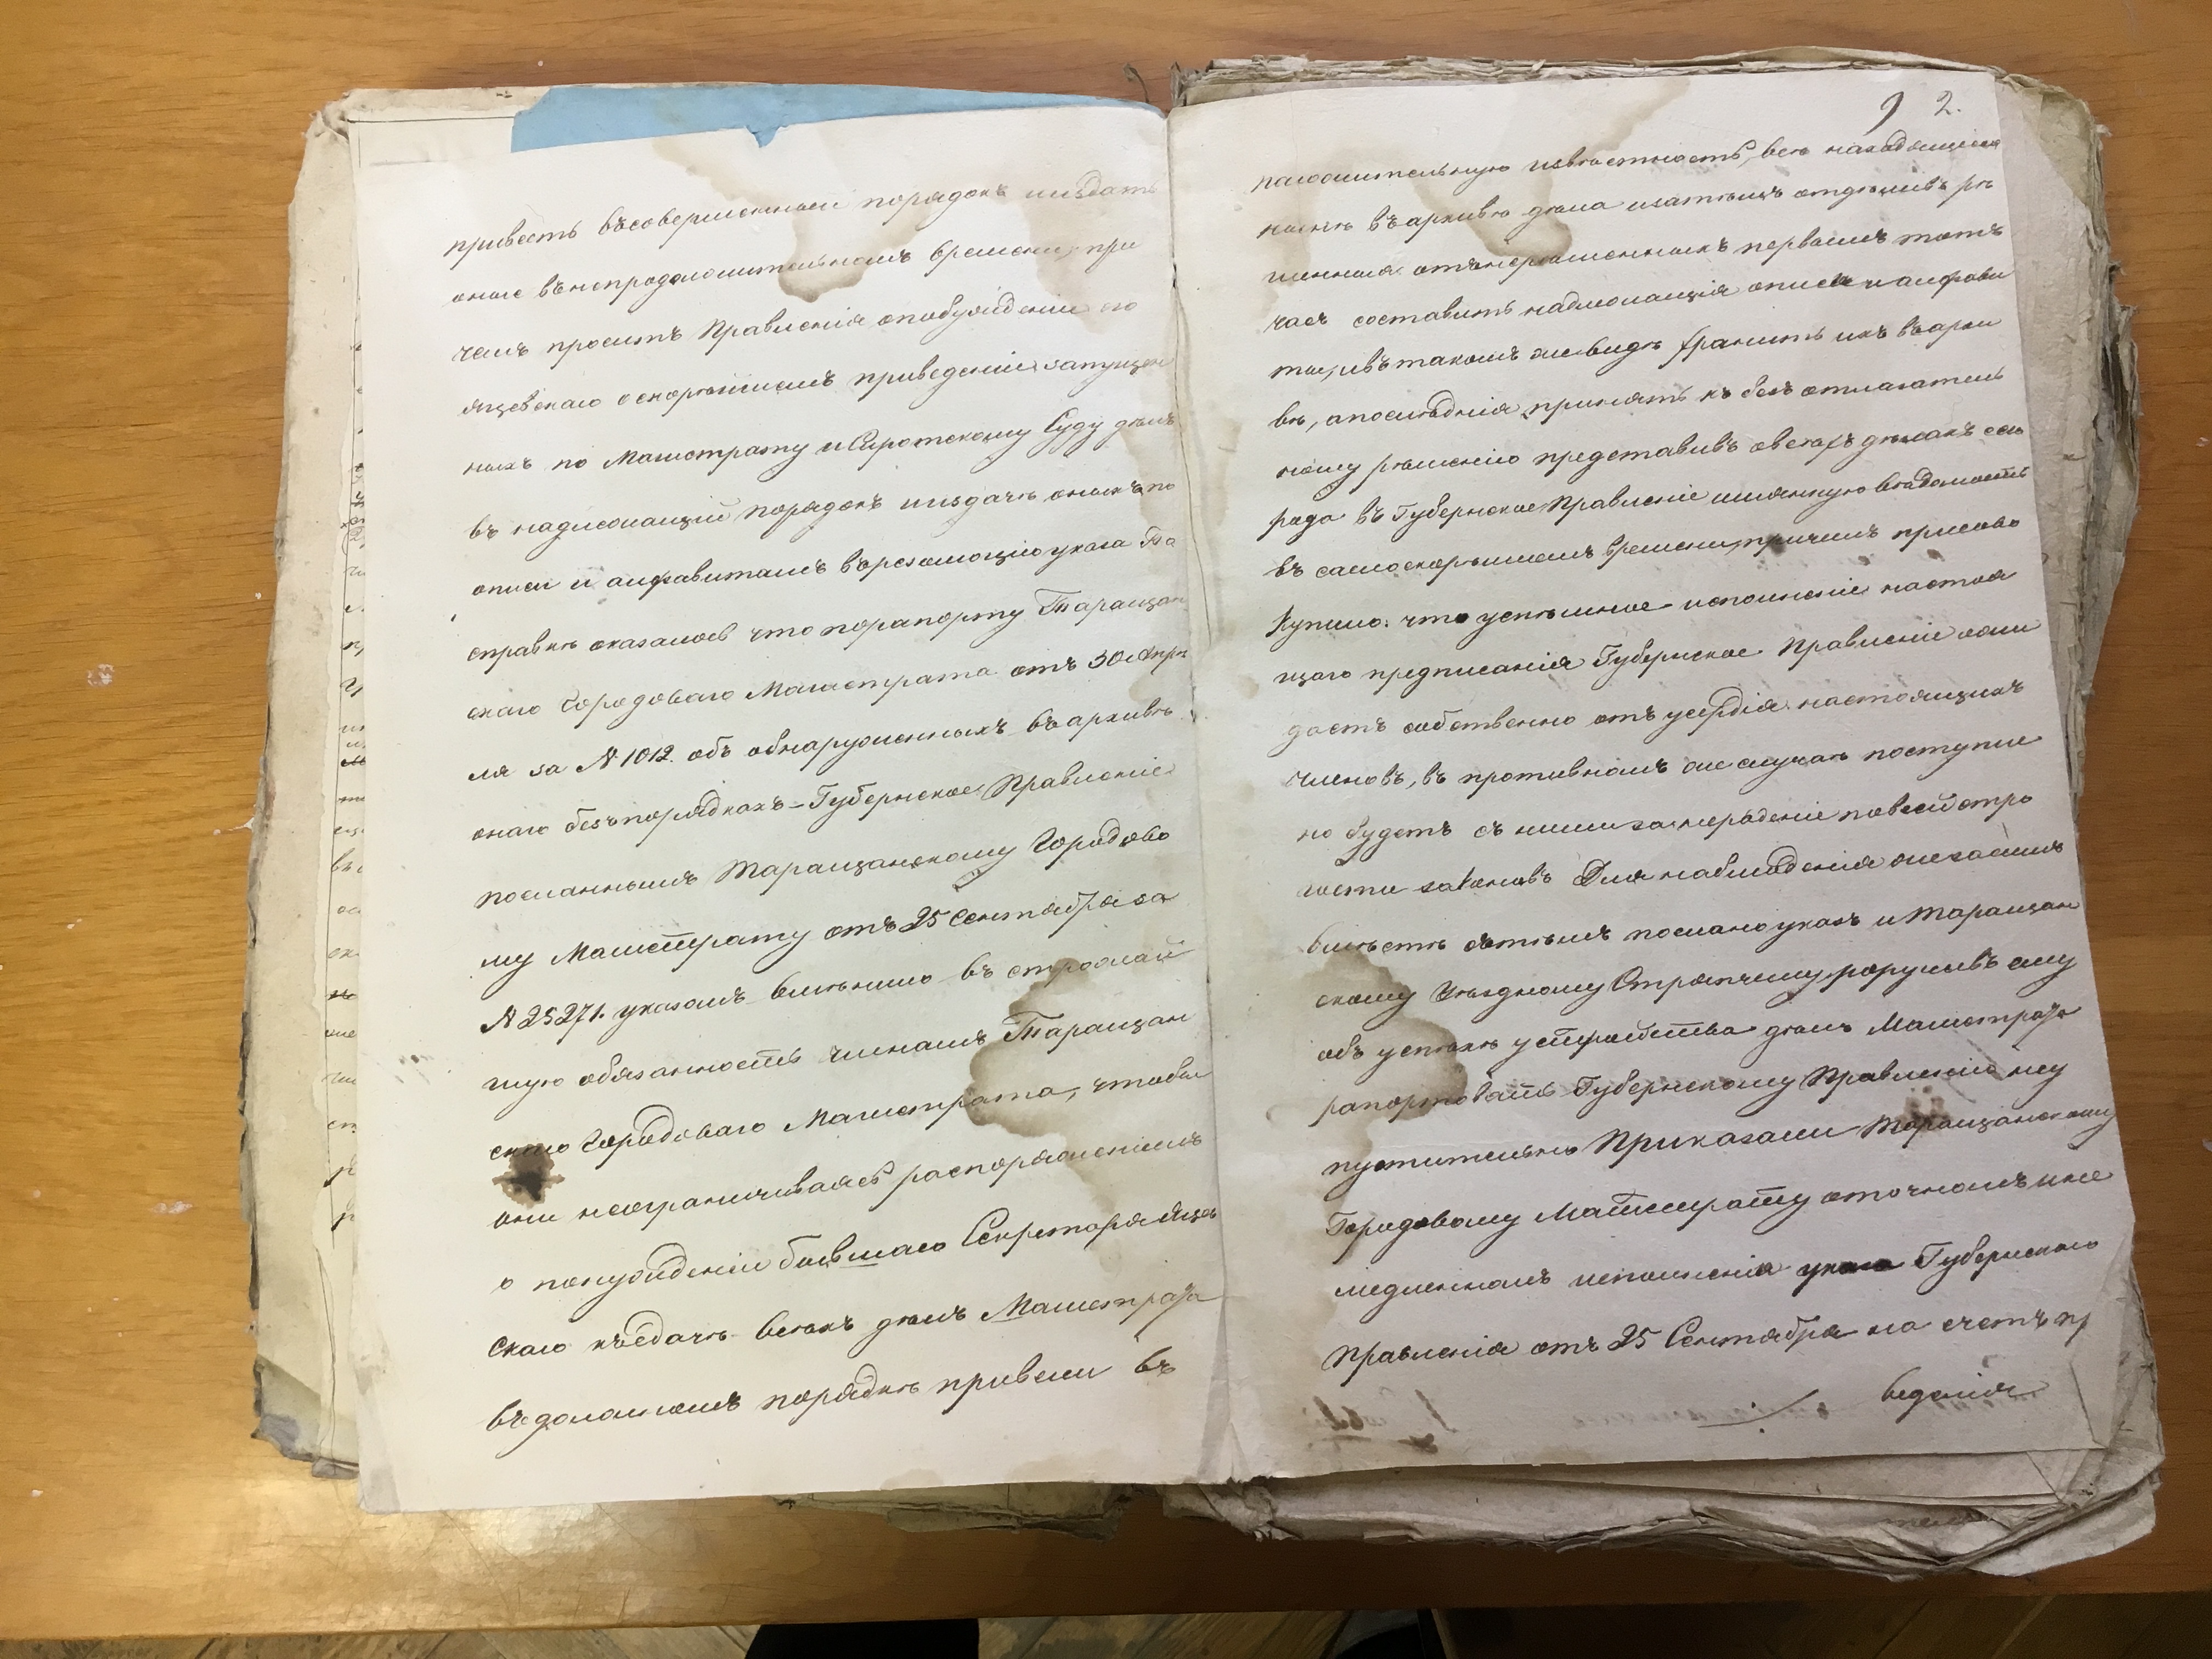 привесть въ совершенный порядокъ и издать
оные въ непродолжительномъ времени, при
чемъ проситъ Правленія о побужденіи его
Яцевскаго о скорѣйшемъ приведеніи запущен
ныхъ по Магистрату и Сиротскому Суду дѣлъ
въ надлежащій порядокъ и издачѣ оныхъ по
описи и алфавитамъ въ резолюцію указа По
справкѣ оказалось что по рапорту Таращан
скаго Городоваго Магистрата отъ 30 Апрѣ
ля за № 1012. объ обнаруженныхъ въ архивѣ
онаго безъпорядкахъ Губернское Правленіе
посланнымъ Таращанскому Городово
му Магистрату отъ 25 Сентября за
№ 25271. указомъ вмѣнило въ строжай
шую обязанность членамъ Таращан
скаго Городоваго Магистрата, чтобы
они неограничиваясь распоряженіемъ
о понужденіи бывшаго Секретаря Яцев
скаго къ сдачѣ всѣхъ дѣлъ Магистрата
въ должномъ порядкѣ привели въ
2.
положительную извѣстность, всѣ находящіяся
нынѣ въ архивѣ дѣла и затѣмъ отдѣливъ рѣ
шенныя отъ нерѣшенныхъ первымъ тотъ
часъ составить надлежащія описи и алфави
ты, и въ такомъ же видѣ хранить ихъ въ архи
вѣ, а послѣднія принять къ безъ отлагатель
ному рѣшенію представивъ о всѣхъ дѣлахъ сего
рода въ Губернское Правленіе имянную вѣдомость
въ самоскорѣйшемъ времени, причемъ присово
купило: что успѣшное исполненіе настоя
щаго предписанія Губернское Правленіе ожи
даетъ собственно отъ усердія настоящихъ
членовъ, въ противномъ же случаѣ поступле
но будетъ съ ними за нерадѣніе по всей стро
гости законовъ Для наблюденія же за симъ
вмѣстѣ съ тѣмъ послано указъ и Таращан
скому Уѣздному Стряпчему поручивъ ему
объ успѣхѣ устройства дѣлъ Магистрата
рапортовать Губернскому Правленію неу
пустительно Приказали Таращанскому
Городовому Магистрату о точномъ и не
медленномъ исполненіи указа Губернскаго
Правленія отъ 25 Сентября на счетъ пр
веденія